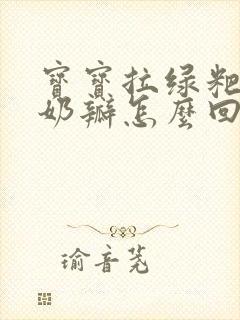 寶寶拉绿粑
奶瓣怎麼回
瑜音茺